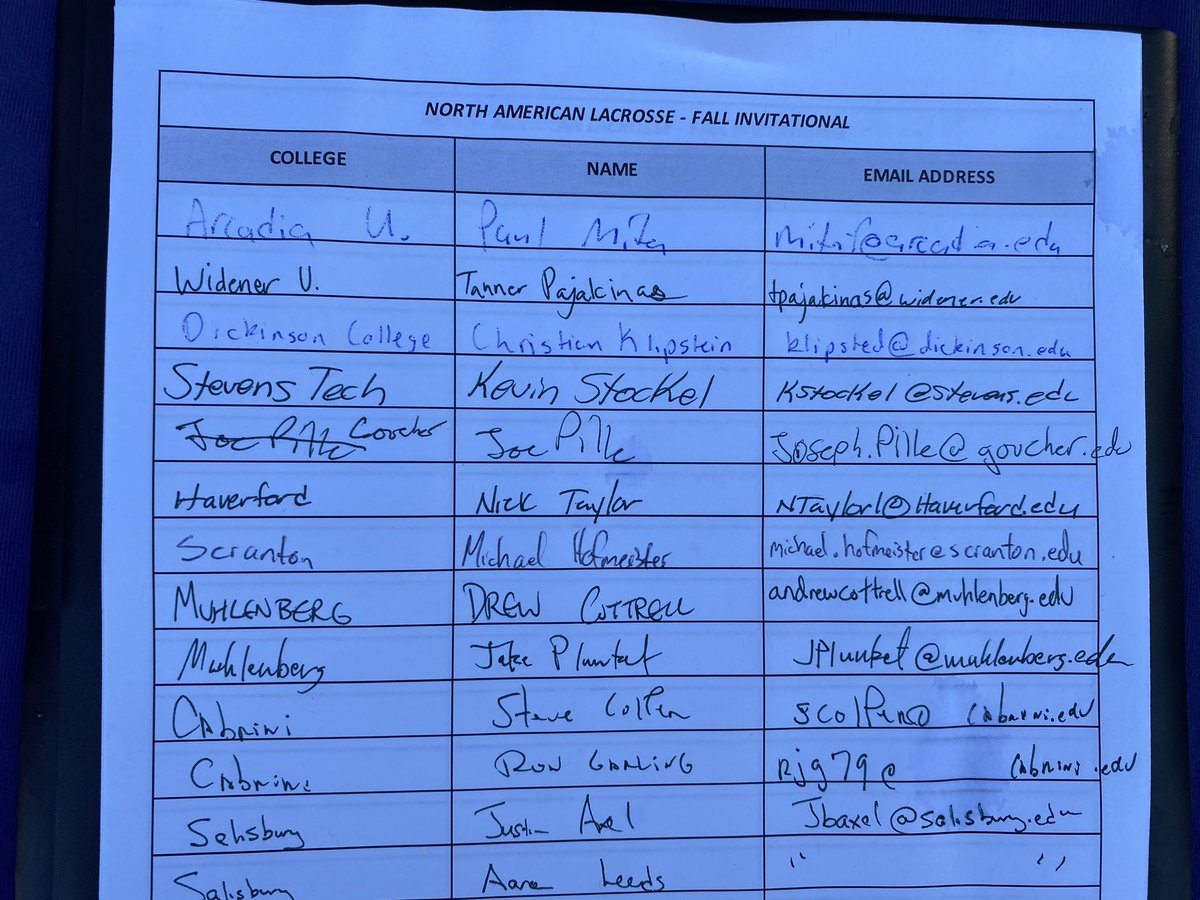 NORTH AMERICAN LACROSSE - FALL INVITATIONAL
COLLEGE NAME EMAIL ADDRESS
Arcadia U. Paul Mita
Widener U. Tanner Pajakinas tpajakinas@widener.edu
Dickinson College Christian Klipstein klipsted@dickinson.edu
Stevens Tech Kevin Stockel KStockel@stevens.edu
Joe Pille Goucher Joe Pille Joseph.Pille@goucher.edu
Haverford Nick Taylor NTaylor1@Haverford.edu
Scranton Michael Hofmeister michael.hofmeister@scranton.edu
MUHLENBERG DREW COTTRELL andrewcottrell@muhlenberg.edu
Muhlenberg Jake Plunket JPlunket@muhlenberg.edu
CAbrini Steve Colfer
CAbrini RON GARLING rjg79@ CAbrini.edu
Salisbury Justin Axel Jbaxel@salisbury.edu
Salisbury Aaron Leeds " "